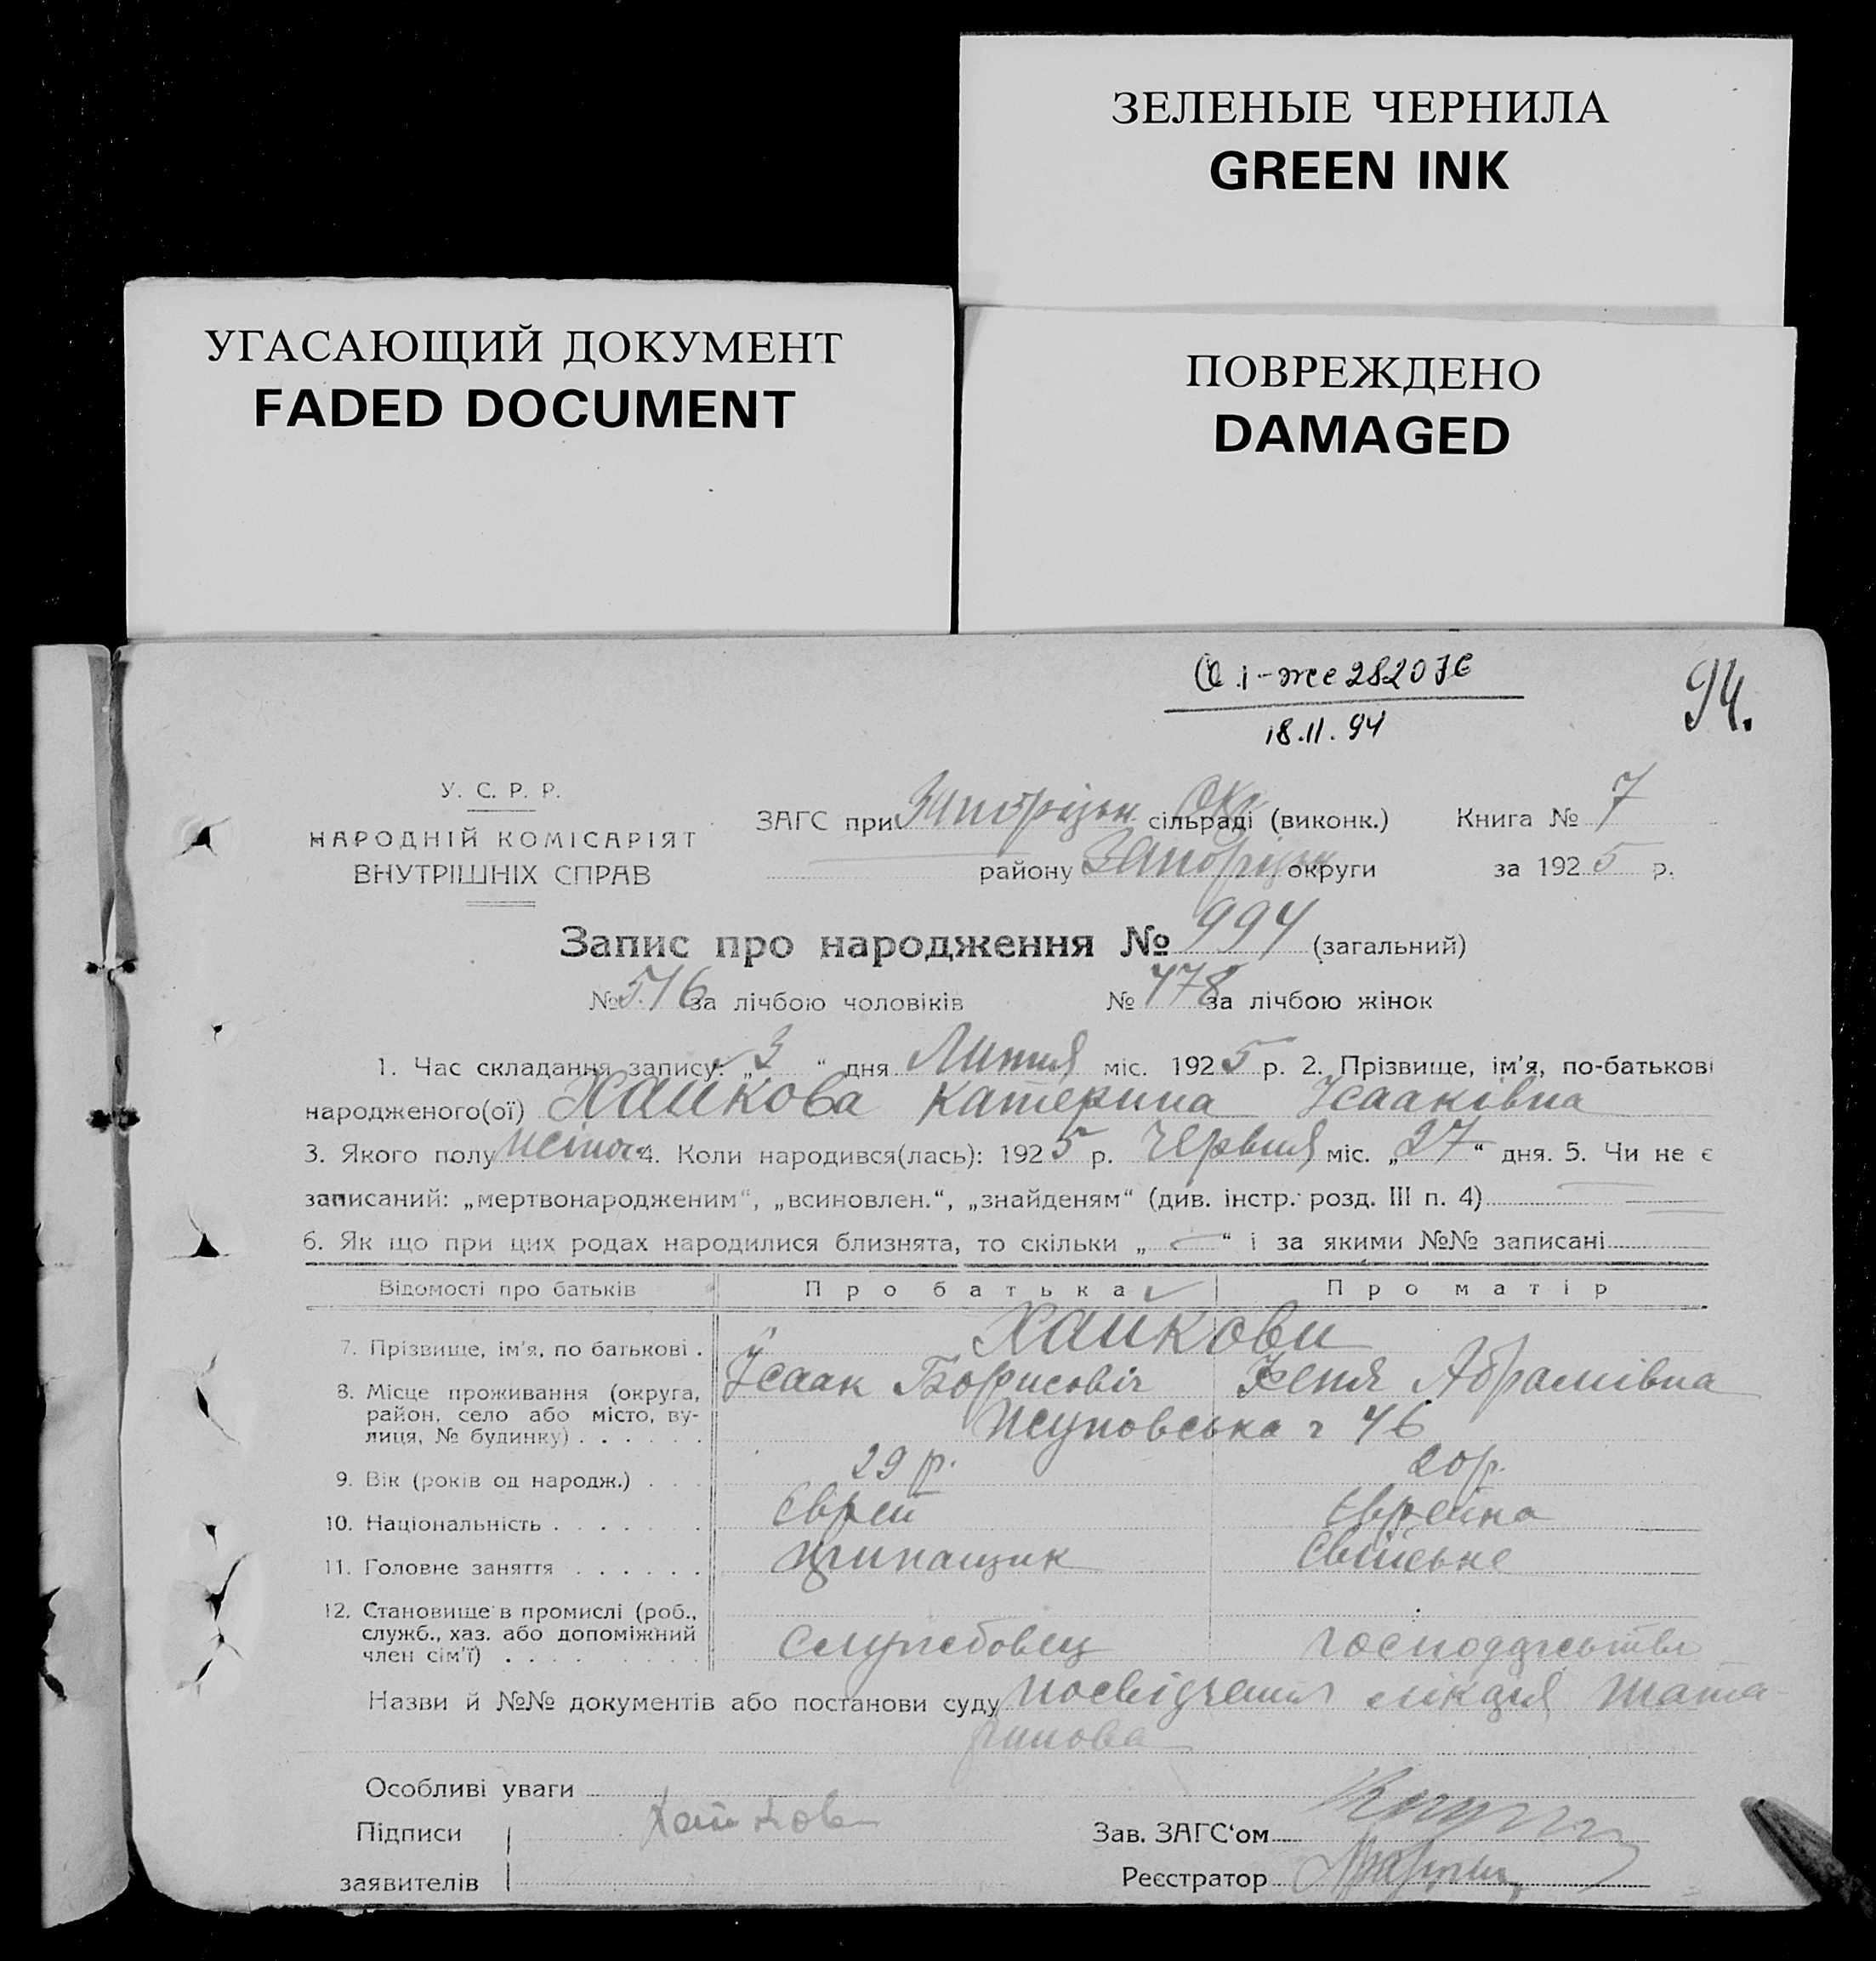 ЗЕЛЕНЫЕ ЧЕРНИЛА
GREEN INK
УГАСАЮЩИЙ ДОКУМЕНТ
FADED DOCUMENT
ПОВРЕЖДЕНО
DAMAGED
94.
18.11.94
У. С. Р. Р.
НАРОДНІЙ КОМІСАРІЯТ
ВНУТРІШНІХ СПРАВ
ЗАГС при Запоріськ Окр сільраді (виконк.)
району Запоріськ округи
Книга № 7
за 1925 р.
Запис про народження № 994 (загальний)
№ 516 за лічбою чоловіків № 478 за лічбою жінок
1. Час складання запису: „3“ дня Липня міс. 1925 р. 2. Прізвище, ім'я, по-батькові
народженого(ої) Хайкова Катерина Ісааківна
3. Якого полу жіноч 4. Коли народився(лась): 1925 р. Червня міс. „27“ дня. 5. Чи не є
записаний: „мертвонародженим“, „всиновлен.“, „знайденям“ (див. інстр. розд. III п. 4)
6. Як що при цих родах народилися близнята, то скільки „ “ і за якими №№ записані
Відомості про батьків Про батька Про матір
7. Прізвище, ім'я, по батькові . Хайкови
Ісаак Борисовіч Женя Абрамівна
8. Місце проживання (округа,
район, село або місто, ву-
лиця, № будинку) . . . . . . 46
9. Вік (років од народж.) . . . 29 р. 20 р.
10. Національність . . . . . . . Єврей Єврейка
11. Головне заняття . . . . . . Свійське
12. Становище в промислі (роб.,
служб., хаз. або допоміжний
член сім'ї) . . . . . . . . . Службовец господарство
Назви й №№ документів або постанови суду посвідчення лікаря Тата-
ринова
Особливі уваги
Підписи Хайков
заявителів
Зав. ЗАГС'ом
Реєстратор